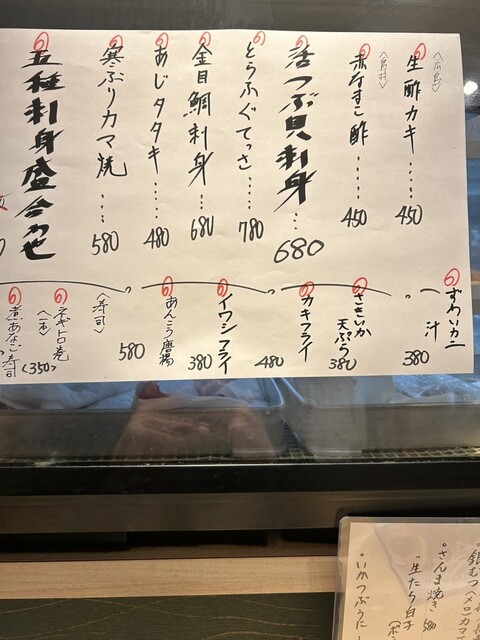 ⑥生酢カキ……450
〈広島〉
⑥赤なまこ酢……450
⑥活つぶ貝刺身…680
⑥とらふぐてっさ…780
⑥金目鯛刺身…680
⑥あじタタキ……480
⑥寒ぶりカマ焼…580
⑥五種刺身盛合わせ
⑥ずわいカニ一汁380
⑥さきいか天ぷら380
⑥カキフライ480
⑥イワシフライ380
⑥あんこう唐揚580
〈寿司〉
⑥ネギトロ巻〈一本〉
⑥煮あなご寿司〈350〉
銀むつ(メロ)カマ
さんま焼き580
生たら白子
いかつぶうに